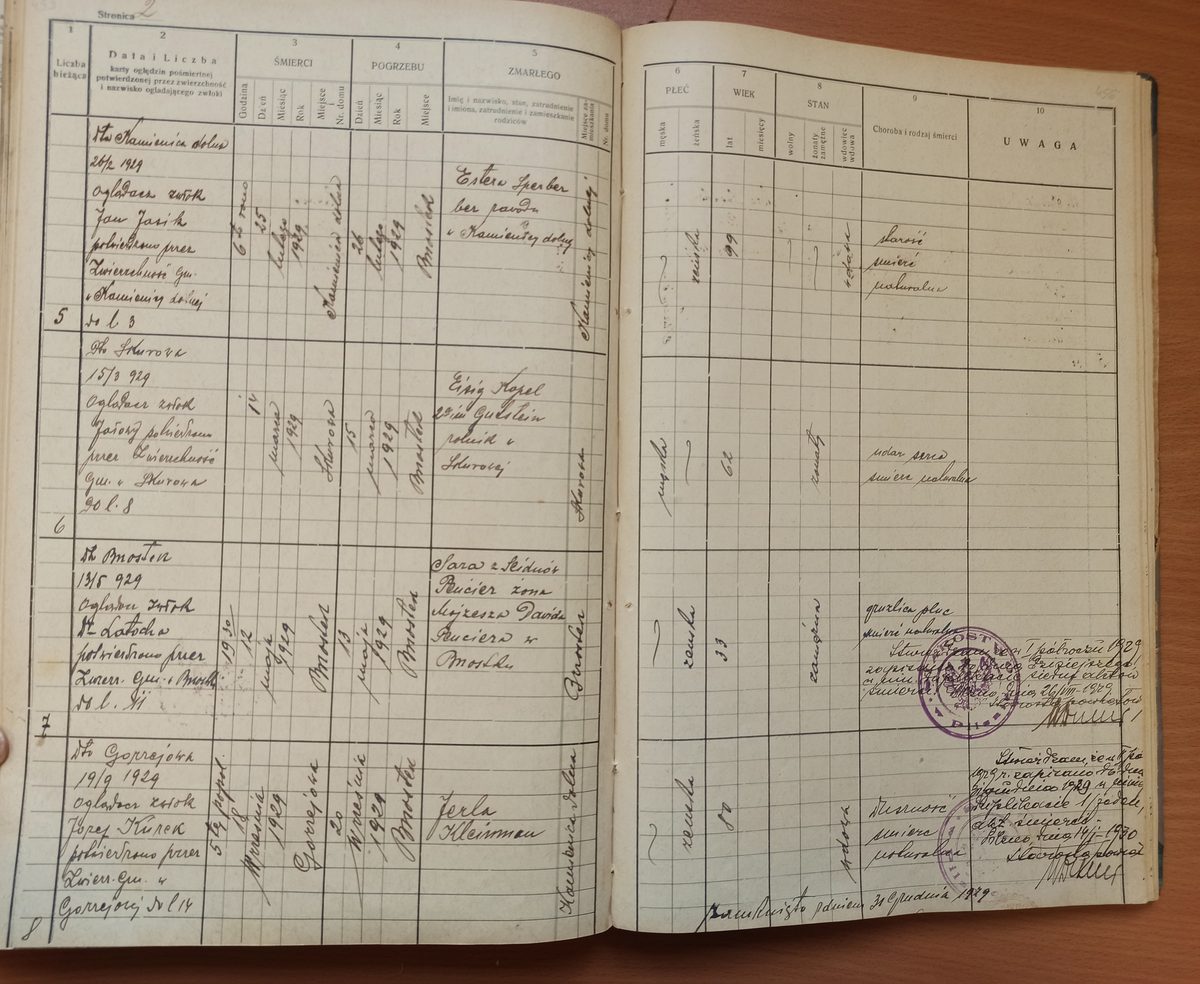 Stronica 2
1
Liczba
bieżąca
2
Data i Liczba
karty oględzin pośmiertnej
potwierdzonej przez zwierzchność
i nazwisko oglądającego zwłoki
3
ŚMIERCI
Godzina
Dzień
Miesiąc
Rok
Miejsce i Nr. domu
4
POGRZEBU
Dzień
Miesiąc
Rok
Miejsce
5
ZMARŁEGO
Imię i nazwisko, stan, zatrudnienie
i imiona, zatrudnienie i zamieszkanie
rodziców
Miejsce zamieszkania
Nr. domu
6
PŁEĆ
męska
żeńska
7
WIEK
lat
miesięcy
8
STAN
wolny
żonaty
zamężne
wdowiec
wdowa
9
Choroba i rodzaj śmierci
10
UWAGA
5
Dto Kamienica dolna
26/2 1929
Oglądacz zwłok
Jan Jasik
potwierdzono przez
Zwierzchność Gm.
w Kamienicy dolnej
do l. 3
6ta rano
25
lutego
1929
Kamienica dolna
26
lutego
1929
Brostek
Estera Sperber
bez zawodu
w Kamienicy dolnej
Kamienicy dolnej
żeńska
99
wdowa
starość
śmierć
naturalna
6
Dto Skurowa
15/3 929
Oglądacz zwłok
potwierdzono
przez Zwierzchność
Gm. w Skurowa
do l. 8
14
marca
1929
Skurowa
15
marca
1929
Brostek
Eisig Kopel
2ga im
rolnik w
Skurowej
Skurowa
męska
62
żonaty
udar serca
śmierć naturalna
7
Dto Brostek
13/5 929
Oglądacz zwłok
Dr Latocha
potwierdzono przez
Zwierz. Gm. w Brostku
do l.
1930
12
maja
1929
Brostek
13
maja
1929
Brostek
Sara z
żona
Mojżesza Dawida
w
Brostku
Brostek
żeńska
33
zamężna
gruźlica płuc
śmierć naturalna
Stwierdzam, że w I półroczu 1929
zapisano
śmierci. Pilzno, dnia 26/VII-1929
Starosta powiatowy
8
Dto Gorzejowa
19/9 1929
Oglądacz zwłok
Józef Kurek
potwierdzono przez
Zwierz. Gm. w
Gorzejowej do l 14
5ta popoł.
18
Września
1929
Gorzejowa
20
Września
1929
Brostek
Jerla
Kleinman
Kamienica dolna
żeńska
80
wdowa
śmierć
naturalna
Stwierdzam, że w II pół
1929 r. zapisano do dnia
31 grudnia 1929 w
duplikacie 1
akt śmierci.
Pilzno, dnia 14/I-1930
Starosta powiat
Zamknięto z dniem 31 Grudnia 1929